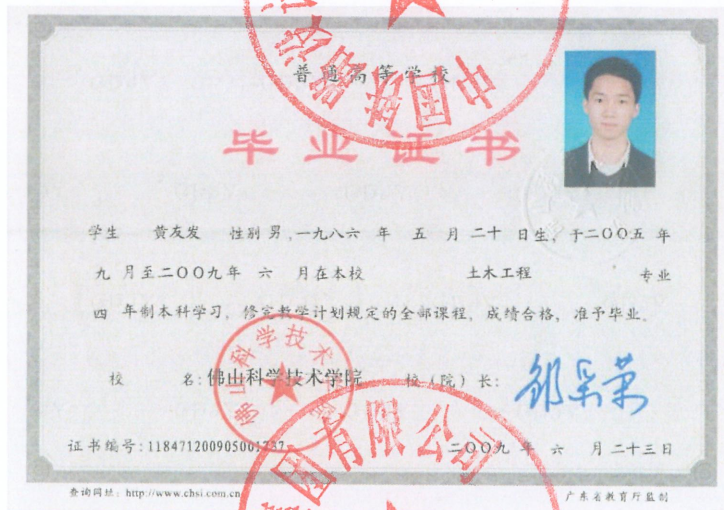 普通高等学校
毕业证书
学生 黄友发 性别 男,一九八六 年 五 月 二十 日生,于二〇〇五 年
九 月至二〇〇九年 六 月在本校 土木工程 专业
四 年制本科学习,修完教学计划规定的全部课程,成绩合格,准予毕业。
校 名:佛山科学技术学院 校(院)长:
佛山科学技术学院
证书编号:118471200905001737
二〇〇九 年 六 月二十三日
查询网址:http://www.chsi.com.cn
广东省教育厅监制
中国铁路
有限公司